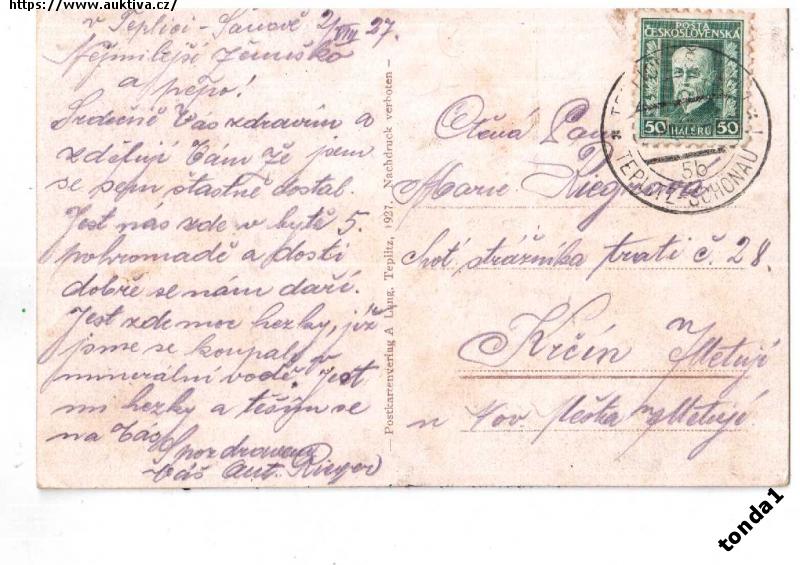 https://www.auktiva.cz/
v Teplici - Šanově 2/VIII 27.
Nejmilejší ženuško
a pepo!
Srdečně Vas zdravím a
zděluji Vám že jsem
se sem šťastně dostal.
Jest nás zde v bytě 5.
pohromadě a dosti
dobře se nám daří.
Jest zde moc hezky, již
jsme se koupaly v
minerální vodě. Jest
mi hezky a těším se
na Vás
S pozdravem
Váš Ant. Rieger
Postkartenverlag A Lung, Teplitz, 1927. Nachdruck verboten
POŠTA
ČESKOSLOVENSKÁ
50 HALÉŘŮ 50
5b
TEPLITZ-SCHÖNAU
Marie Riegrova
Choť strážníka trati č. 28.
Krčín n Metují
u Nov Města n Metují.
tonda1